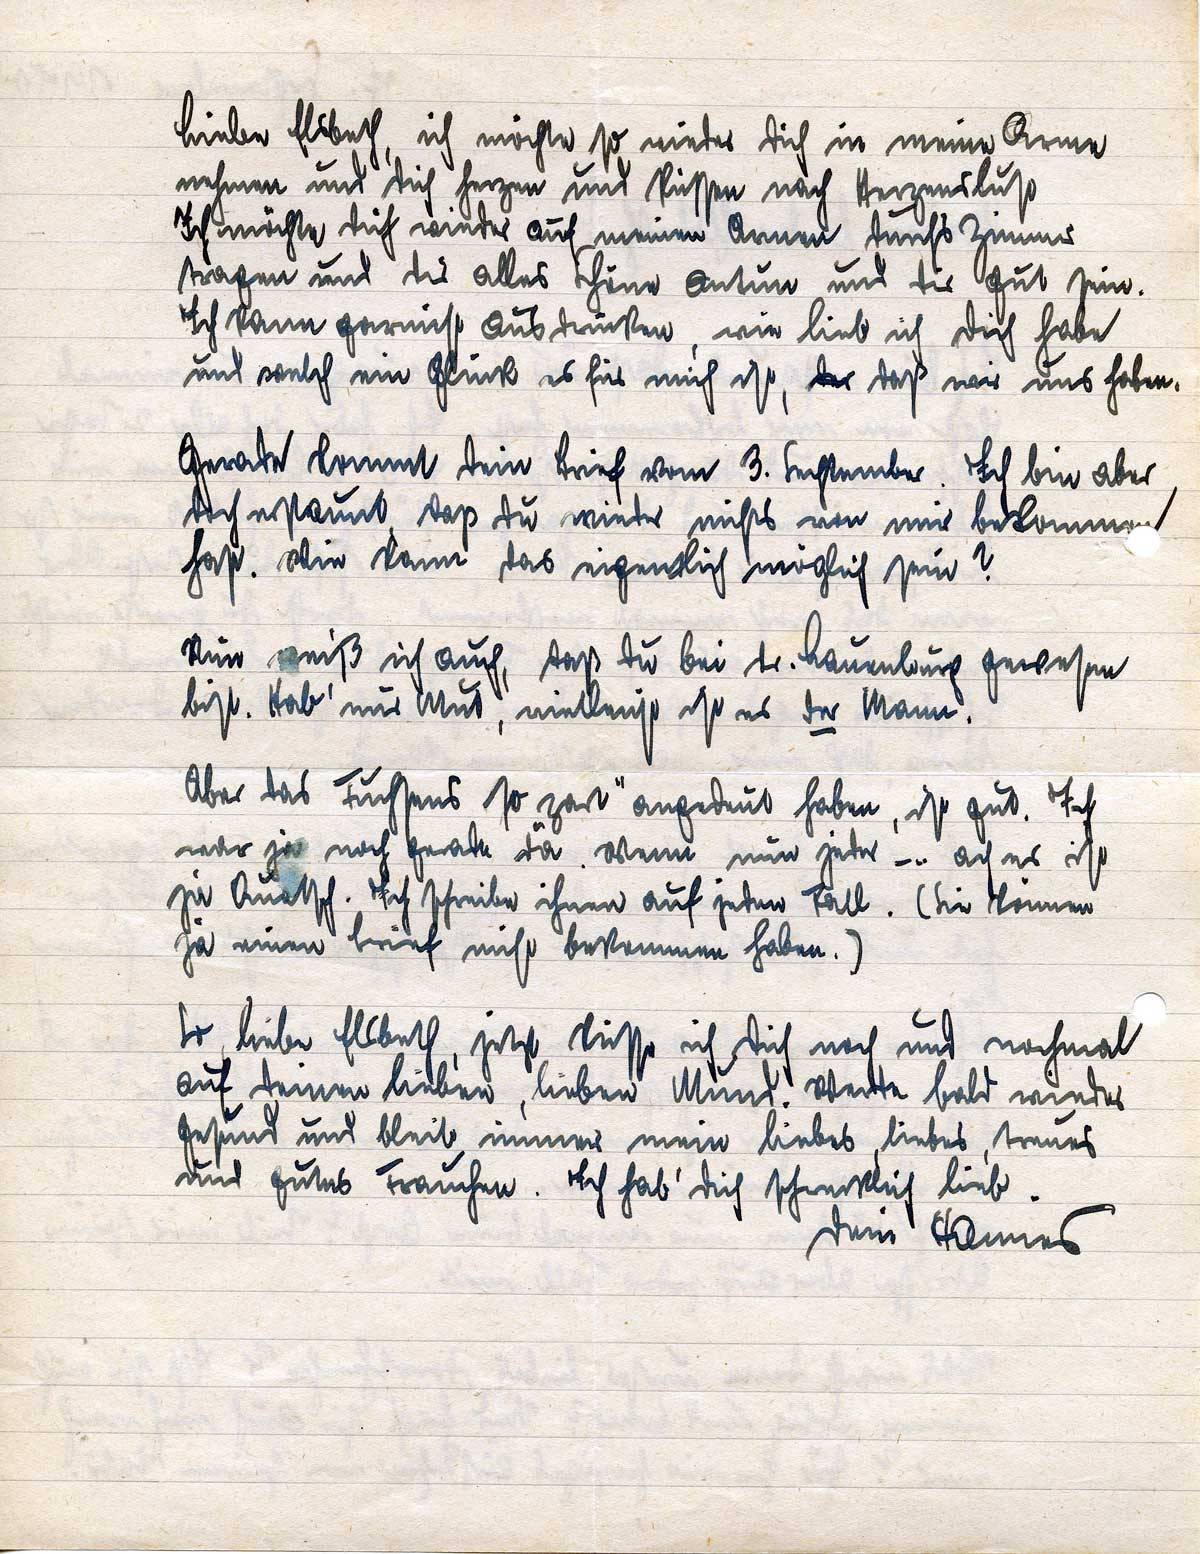 Liebe Elsbeth, ich möchte so wieder dich in meine Arme
nehmen und dich herzen und küssen nach Herzenslust
Ich möchte dich wieder auf meinen Armen durchs Zimmer
tragen und dir alles Schöne antun und dir gut sein.
Ich kann garnicht ausdrücken, wie lieb ich dich habe
und welch ein Glück es für mich ist, der daß wir uns haben.
Gerade kommt dein Brief vom 3. September. Ich bin aber
doch erstaunt, daß du wieder nichts von mir bekommen
hast. Wie kann das eigentlich möglich sein?
Nun weiß ich auch, daß du bei Dr. Lauenburg gewesen
bist. Hab' nur Mut, vielleicht ist es der Mann.
Aber das Fuchsens so zart" angedeut haben, ist gut. Ich
war ja noch gerade da. Wenn nun jeder -.. ach es ist
ja Quatsch. Ich schreibe ihnen auf jeden Fall. (Sie können
ja einen Brief nicht bekommen haben.)
So, liebe Elsbeth, jetzt küsse ich dich noch und nochmal
auf deinen lieben, lieben Mund. Werde bald wieder
gesund und bleib immer mein liebes, liebes, treues
und gutes Frauchen. Ich hab' dich schrecklich lieb.
Dein Hannes